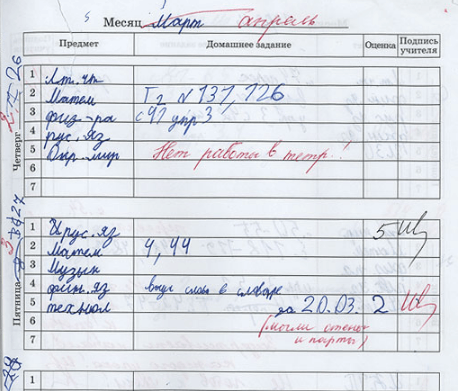 Месяц Март апрель
Предмет Домашнее задание Оценка Подпись учителя
Четверг 26
1 Лит. чт
2 Матем Г2 № 137, 126
3 физ-ра с 97 упр 3
4 рус. яз.
5 Окр. мир Нет работы в тетр.!
6
7
Пятница 27
1 рус. яз 5
2 Матем 4, 44
3 Музык
4 физ. яз выуч слова в словаре
5 технол за 20.03. 2
6 (могли
7 и парты)
1